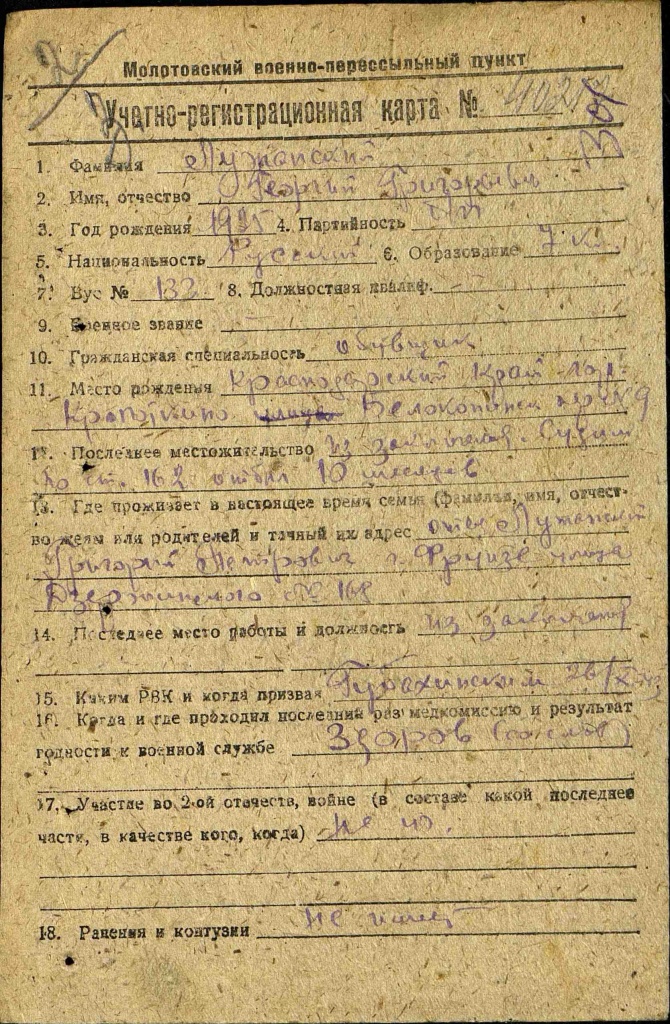 Молотовский военно-перессыльный пункт
Учетно-регистрационная карта №
1. Фамилия Лужанский
2. Имя, отчество Георгий Григорьевич
3. Год рождения 1925 4. Партийность б/п
5. Национальность Русский 6. Образование 7 кл.
7. Вус № 133 8. Должностная квалиф. —
9. Военное звание —
10. Гражданская специальность обувщик
11. Место рождения Краснодарский край гор.
Кропоткино
12. Последнее местожительство из заключен. Судим
по ст. 162 отбыл 10 месяцев
13. Где проживает в настоящее время семья (фамилия, имя, отчест-
во жены или родителей и точный их адрес отец Лужанский
Григорий Петрович г. Фрунзе улица
Дзержинского № 168
14. Последнее место работы и должность из заключения
15. Каким РВК и когда призван Губахинским 26/X
16. Когда и где проходил последний раз медкомиссию и результат
годности к военной службе Здоров (со слов)
17. Участие во 2-ой отечеств, войне (в составе какой последнее
части, в качестве кого, когда) не
18. Ранения и контузии не имеет